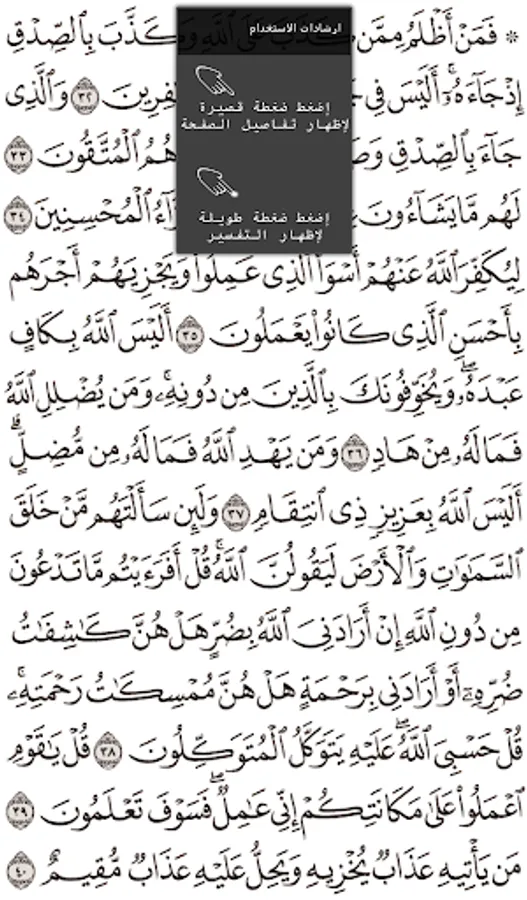 ۞ فَمَنْ أَظْلَمُ مِمَّن كَذَبَ عَلَى ٱللَّهِ وَكَذَّبَ بِٱلصِّدْقِ
إِذْ جَآءَهُۥٓۚ أَلَيْسَ فِى فِرِينَ ٣٢ وَٱلَّذِى
جَآءَ بِٱلصِّدْقِ هُمُ ٱلْمُتَّقُونَ ٣٣
لَهُم مَّا يَشَآءُونَ ٱلْمُحْسِنِينَ ٣٤
لِيُكَفِّرَ ٱللَّهُ عَنْهُمْ أَسْوَأَ ٱلَّذِى عَمِلُوا۟ وَيَجْزِيَهُمْ أَجْرَهُم
بِأَحْسَنِ ٱلَّذِى كَانُوا۟ يَعْمَلُونَ ٣٥ أَلَيْسَ ٱللَّهُ بِكَافٍ
عَبْدَهُۥۖ وَيُخَوِّفُونَكَ بِٱلَّذِينَ مِن دُونِهِۦۚ وَمَن يُضْلِلِ ٱللَّهُ
فَمَا لَهُۥ مِنْ هَادٍ ٣٦ وَمَن يَهْدِ ٱللَّهُ فَمَا لَهُۥ مِن مُّضِلٍّۗ
أَلَيْسَ ٱللَّهُ بِعَزِيزٍ ذِى ٱنتِقَامٍ ٣٧ وَلَئِن سَأَلْتَهُم مَّنْ خَلَقَ
ٱلسَّمَٰوَٰتِ وَٱلْأَرْضَ لَيَقُولُنَّ ٱللَّهُۚ قُلْ أَفَرَءَيْتُم مَّا تَدْعُونَ
مِن دُونِ ٱللَّهِ إِنْ أَرَادَنِىَ ٱللَّهُ بِضُرٍّ هَلْ هُنَّ كَٰشِفَٰتُ
ضُرِّهِۦٓ أَوْ أَرَادَنِى بِرَحْمَةٍ هَلْ هُنَّ مُمْسِكَٰتُ رَحْمَتِهِۦۚ
قُلْ حَسْبِىَ ٱللَّهُۖ عَلَيْهِ يَتَوَكَّلُ ٱلْمُتَوَكِّلُونَ ٣٨ قُلْ يَٰقَوْمِ
ٱعْمَلُوا۟ عَلَىٰ مَكَانَتِكُمْ إِنِّى عَٰمِلٌۖ فَسَوْفَ تَعْلَمُونَ ٣٩
مَن يَأْتِيهِ عَذَابٌ يُخْزِيهِ وَيَحِلُّ عَلَيْهِ عَذَابٌ مُّقِيمٌ ٤٠
ارشادات الاستخدام
إضغط ضغطة قصيرة
لإظهار تفاصيل الصفحة
إضغط ضغطة طويلة
لإظهار التفسير